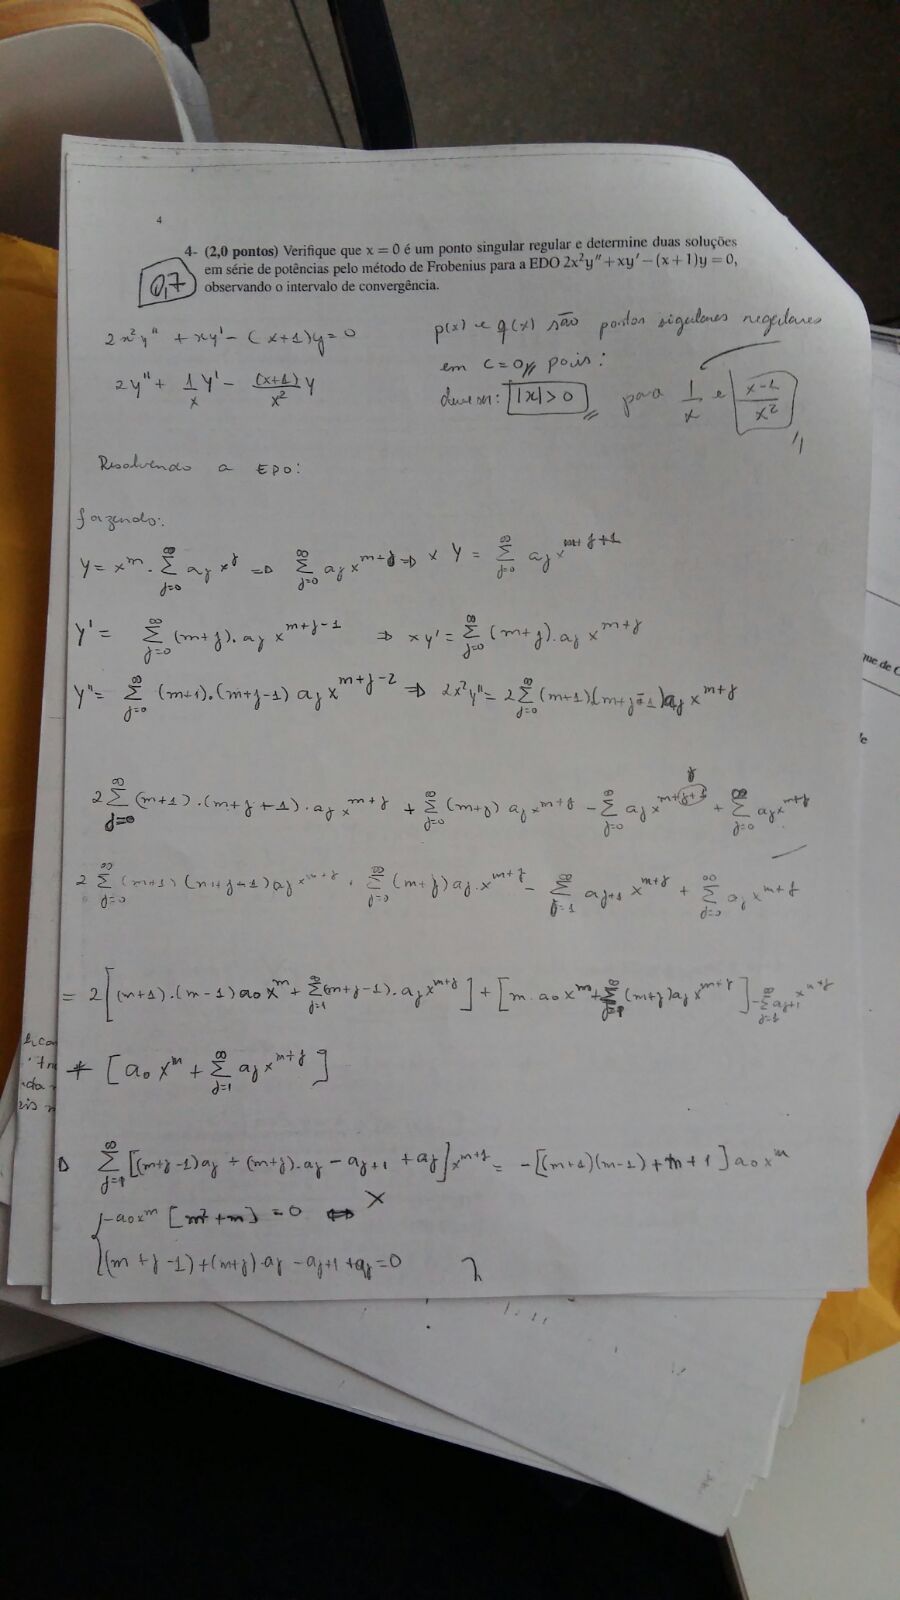 4
4- (2,0 pontos) Verifique que x = 0 é um ponto singular regular e determine duas soluções
em série de potências pelo método de Frobenius para a EDO 2x²y″ + xy′ − (x+1)y = 0,
observando o intervalo de convergência.
0,7
2x²y″ + xy′ − (x+1)y = 0
2y″ + 1/x y′ − (x+1)/x² y
p(x) e q(x) são pontos sigulares regulares
em c = 0,, pois:
|x| > 0 para 1/x e (x−1)/x²
Resolvendo a EDO:
fazendo:
y = x^m · Σ_{j=0}^∞ a_j x^j ⇒ Σ_{j=0}^∞ a_j x^{m+j} ⇒ x y = Σ_{j=0}^∞ a_j x^{m+j+1}
y′ = Σ_{j=0}^∞ (m+j)·a_j x^{m+j−1} ⇒ xy′ = Σ_{j=0}^∞ (m+j)·a_j x^{m+j}
y″ = Σ_{j=0}^∞ (m+1)·(m+j−1) a_j x^{m+j−2} ⇒ 2x²y″ = 2Σ_{j=0}^∞ (m+1)(m+j−1)a_j x^{m+j}
2Σ_{j=0}^∞ (m+1)·(m+j+1)·a_j x^{m+j} + Σ_{j=0}^∞ (m+j) a_j x^{m+j} − Σ_{j=0}^∞ a_j x^{m+j+1} + Σ_{j=0}^∞ a_j x^{m+j}
2 Σ_{j=0}^∞ (m+1)(m+j−1)a_j x^{m+j} + Σ_{j=0}^∞ (m+j)a_j·x^{m+j} − Σ_{j=1}^∞ a_{j+1} x^{m+j} + Σ_{j=0}^∞ a_j x^{m+j}
= 2[(m+1)·(m−1)a₀x^m + Σ_{j=1}^∞ (m+j−1)·a_j x^{m+j}] + [m·a₀x^m + Σ (m+j)a_j x^{m+j}] − Σ_{j=1}^∞ a_{j+1} x^{m+j}
+ [a₀ x^m + Σ_{j=1}^∞ a_j x^{m+j}]
Σ_{j=1}^∞ [(m+j−1)a_j + (m+j)·a_j − a_{j+1} + a_j] x^{m+j} = −[(m+1)(m−1)+m+1] a₀x^m
{ −a₀x^m [m²+m] = 0 ⇔ X
(m+j−1)+(m+j)·a_j − a_{j+1} + a_j = 0
que de C